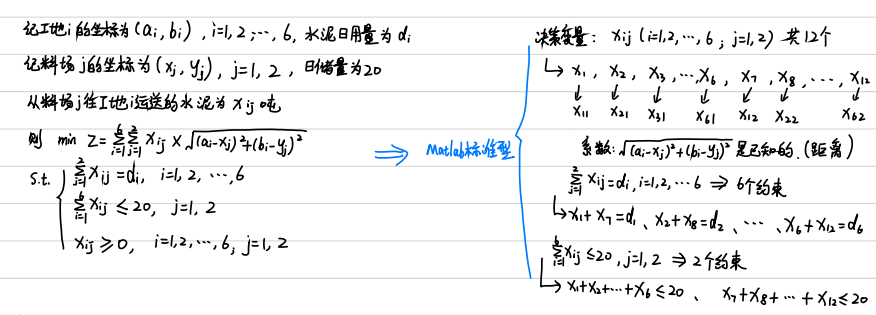 记工地i的坐标为(aᵢ,bᵢ),i=1,2,…,6,水泥日用量为dᵢ
记料场j的坐标为(xⱼ,yⱼ),j=1,2,日储量为20
从料场j往工地i运送的水泥为Xᵢⱼ吨
则 min Z=∑_{i=1}^{6}∑_{j=1}^{2} Xᵢⱼ×√((aᵢ-xⱼ)²+(bᵢ-yⱼ)²)
s.t. { ∑_{j=1}^{2} Xᵢⱼ=dᵢ, i=1,2,…,6
∑_{i=1}^{6} Xᵢⱼ≤20, j=1,2
Xᵢⱼ≥0, i=1,2,…,6; j=1,2
⇒ Matlab标准型 {
决策变量: Xᵢⱼ(i=1,2,…,6; j=1,2) 共12个
↳ X₁, X₂, X₃, …, X₆, X₇, X₈, …, X₁₂
↓ ↓ ↓ ↓ ↓ ↓ ↓
X₁₁ X₂₁ X₃₁ X₆₁ X₁₂ X₂₂ X₆₂
系数:√((aᵢ-xⱼ)²+(bᵢ-yⱼ)²) 是已知的.(距离)
∑_{j=1}^{2} Xᵢⱼ=dᵢ,i=1,2,…6 ⇒ 6个约束
↳X₁+X₇=d₁、X₂+X₈=d₂、…、X₆+X₁₂=d₆
∑_{i=1}^{6} Xᵢⱼ≤20,j=1,2 ⇒ 2个约束
↳X₁+X₂+…+X₆≤20、 X₇+X₈+…+X₁₂≤20